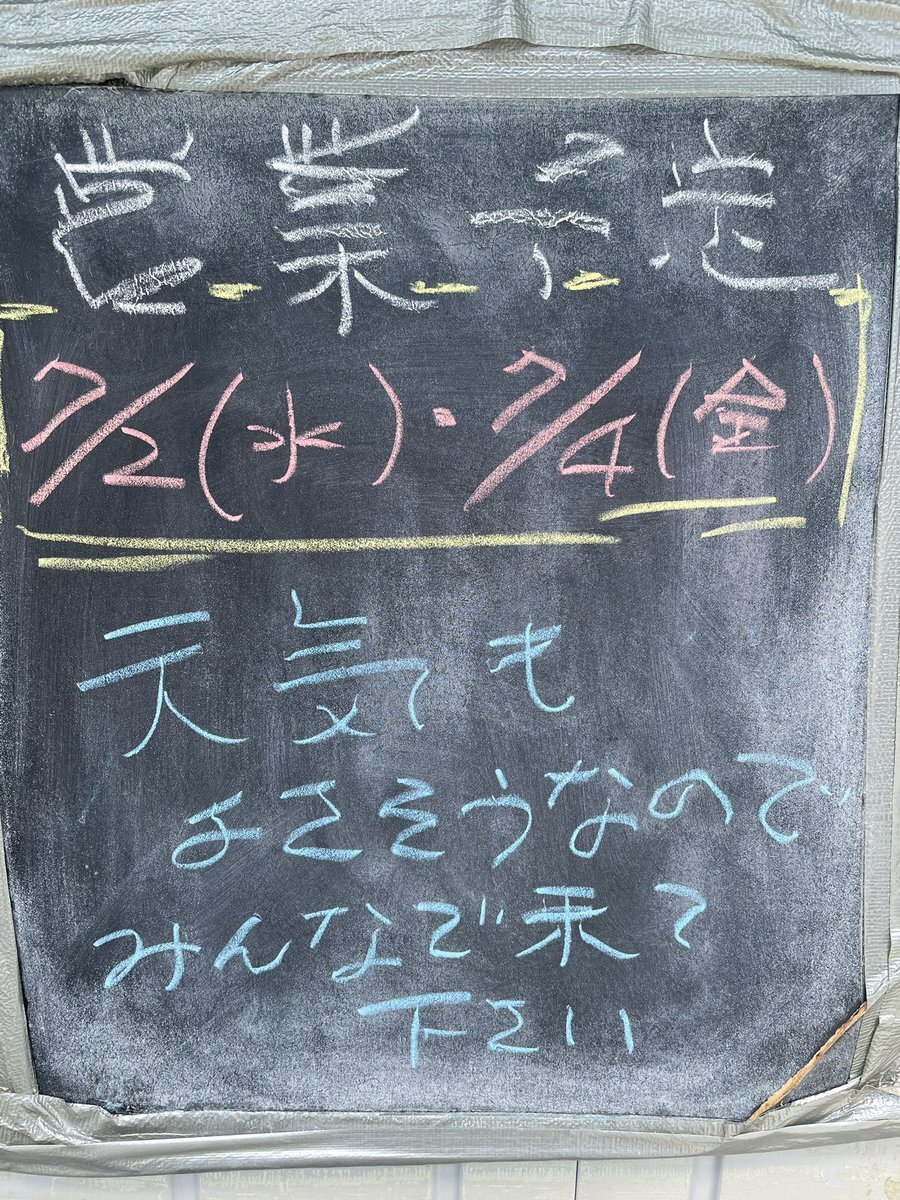 営業予定
7/2(水)・7/4(金)
天気も
よさそうなので
みんなで来て
下さい